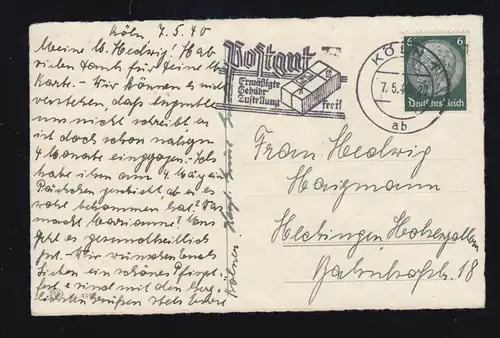 Köln, 7.5.40
Meine lb. Hedwig! Hab
vielen Dank für Deine lb.
Karte. - Wir können es nicht
verstehen, daß
uns nicht schreibt er
ist doch schon
4 Monate eingezogen. - Ich
habe ihm am 4. Mai ein
Päckchen geschickt, ob er es
wohl bekommen hat? Was
macht Marianne? Uns
geht es gesundheitlich
gut. - Wir wünschen Euch
Lieben ein schönes Pfingst-
fest u. sind mit den herz-
lichsten Grüßen stets Eure
Kölner.
Postgut
Ermäßigte
Gebühr
Zustellung
frei!
KÖLN
7.5.4
ab
6 6
Deutsches Reich
Frau Hedwig
Haizmann
Hechingen Hohenzollern
Bahnhofstr. 18